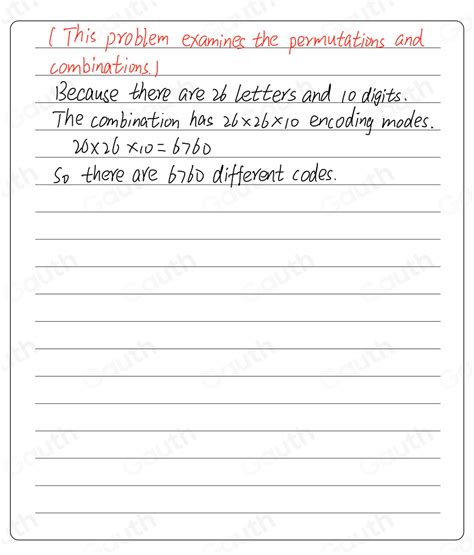 (This problem examines the permutations and
combinations.)
Because there are 26 letters and 10 digits.
The combination has 26×26×10 encoding modes.
26×26×10=6760
So there are 6760 different codes.